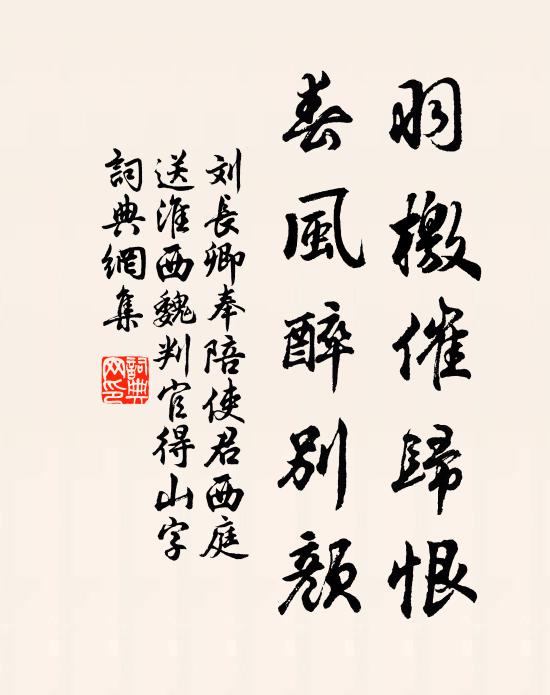 羽檄催歸恨
春風醉別顏
刘長卿奉陪使君西庭
送淮西魏判官得山字
詞典網集
詞典网印